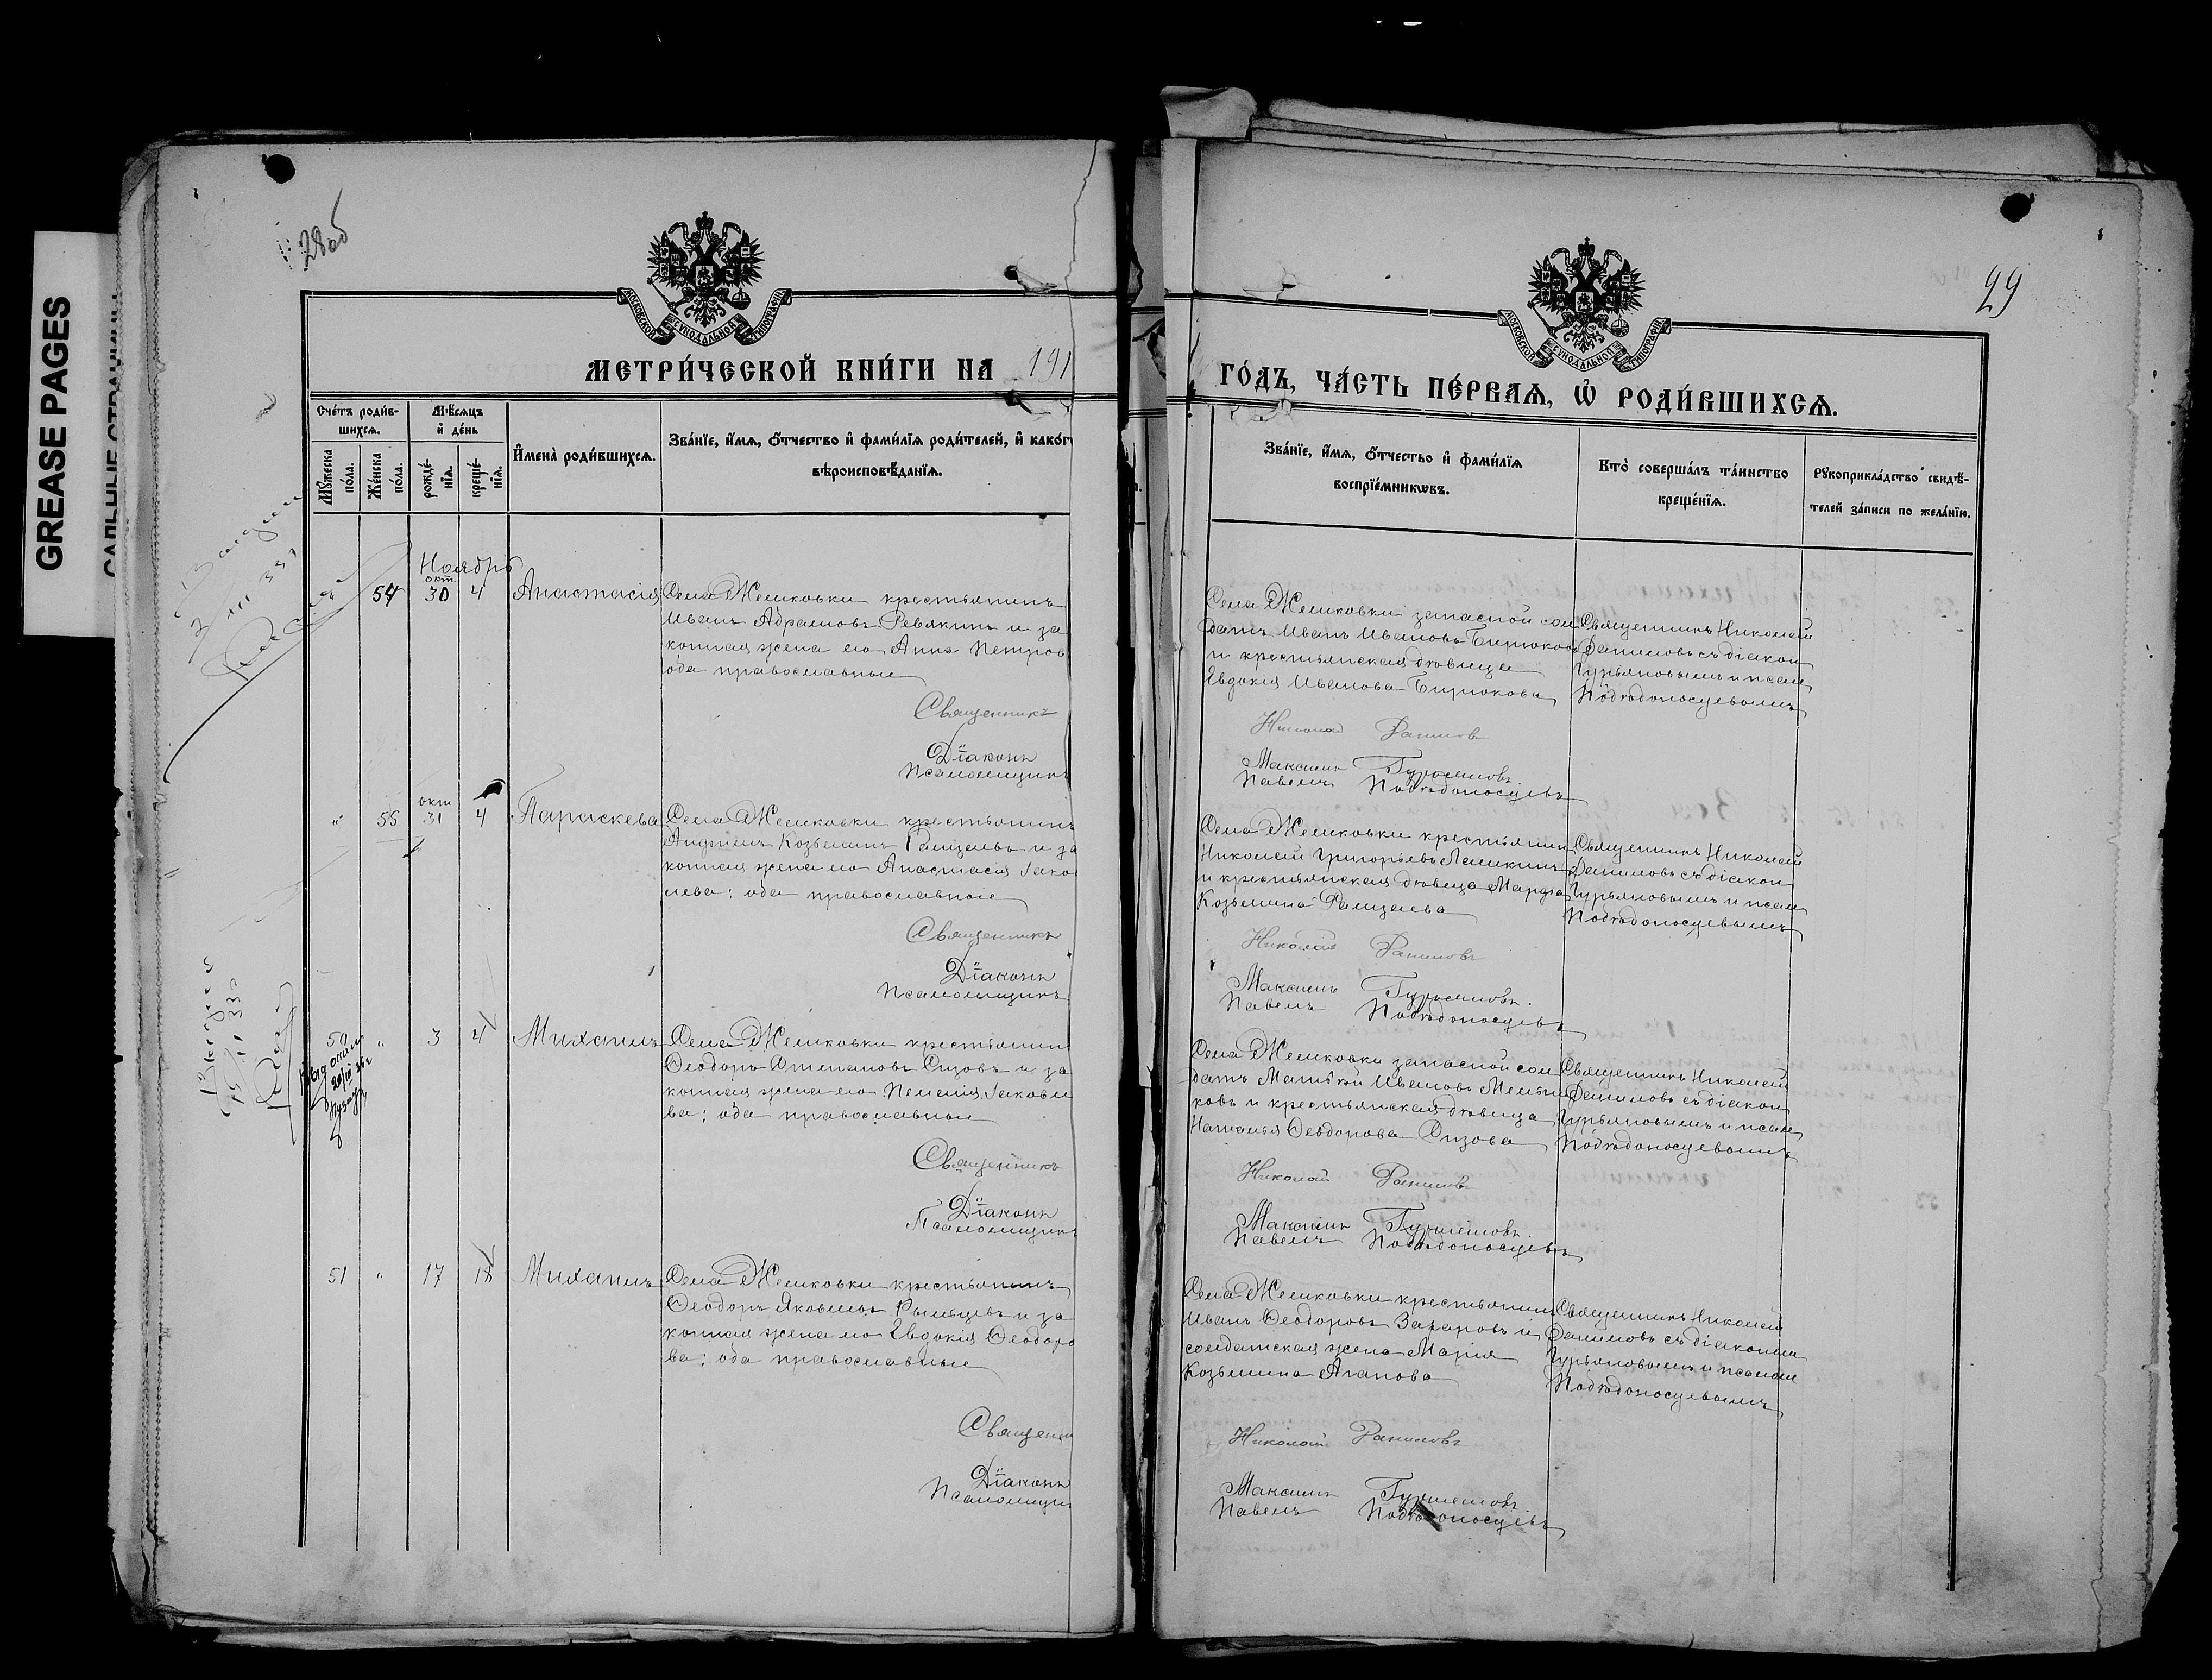 GREASE PAGES
28об
29
МОСКОВСКОЙ СУНОДАЛЬНОЙ ТИПОГРАФІИ
МОСКОВСКОЙ СУНОДАЛЬНОЙ ТИПОГРАФІИ
МЕТРИ́ЧЕСКОЙ КНИ́ГИ НА 191
ГО́ДЪ, ЧА́СТЬ ПЕ́РВАЯ, Ѡ РОДИ́ВШИХСЯ.
Сче́тъ роди́в-
шихся.
Мѣ́сяцъ
и҆ де́нь
Мꙋ́жеска
по́ла.
Же́нска
по́ла.
рожде́-
нїя.
креще́-
нїя.
И҆мена̀ роди́вшихся.
Зва́нїе, и҆́мя, ѻ҆́тчество и҆ фами́лїя роди́телей, и҆ како́г
вѣроисповѣ́данїя.
Зва́нїе, и҆́мя, ѻ҆́тчество и҆ фами́лїя
воспрїе́мникωвъ.
Кто̀ соверша́лъ та́инство
креще́нїя.
Рꙋкоприкла́дство свидѣ́-
телей за́писи по жела́нїю.
Ноябрь
окт.
54 30 4 Анастасія
Села Жешковки крестьянинъ
Иванъ Абрамовъ Ревякинъ и за
конная жена его Анна Петров
оба православные
Священникъ
Діаконъ
Псаломщикъ
Села Жешковки запасной сол
датъ Иванъ Ивановъ Бирюков
и крестьянская дѣвица
Евдокія Иванова Бирюкова
Николай Данилов
Максимъ Гурьяновъ.
Павелъ Побѣдоносцевъ
Священникъ Николай
Даниловъ съ діакон
Гурьяновымъ и псал
Побѣдоносцевымъ
окт
" 55 31 4 Параскева
Села Жешковки крестьянинъ
Козьминъ и за
конная жена его Анастасія Іако
лева; оба православные
Священникъ
Діаконъ
Псаломщикъ
Села Жешковки крестьянин
Николай Григорьевъ
и крестьянская дѣвица Марфа
Козьмина
Николай Даниловъ
Максимъ Гурьяновъ.
Павелъ Побѣдоносцевъ
Священникъ Николай
Даниловъ съ діакон
Гурьяновымъ и псал
Побѣдоносцевымъ
50 " 3 4 Михаилъ
Села Жешковки крестьянин
Ѳеодоръ Степановъ Сизовъ и за
конная жена его Пелагія Іаковле
ва; оба православные
Священникъ
Діаконъ
Псаломщикъ
Села Жешковки запасной сол
датъ Матѳей Ивановъ Мельни
ковъ и крестьянская дѣвица
Наталія Ѳеодорова Сизова
Николай Данилов
Максимъ Гурьяновъ.
Павелъ Побѣдоносцевъ
Священникъ Николай
Даниловъ съ діакон
Гурьяновымъ и псал
Побѣдоносцевымъ
51 " 17 18 Михаилъ
Села Жешковки крестьянинъ
Ѳеодоръ Яковлевъ и за
конная жена его Евдокія Ѳеодоро
ва; оба православные
Священни
Діаконъ
Псаломщи
Села Жешковки крестьянин
Иванъ Ѳеодоровъ Захаровъ и
солдатская жена Марія
Козьмина Агапова
Николай Даниловъ
Максимъ Гурьяновъ.
Павелъ Побѣдоносцевъ
Священникъ Николай
Даниловъ съ діакономъ
Гурьяновымъ и псалом
Побѣдоносцевымъ